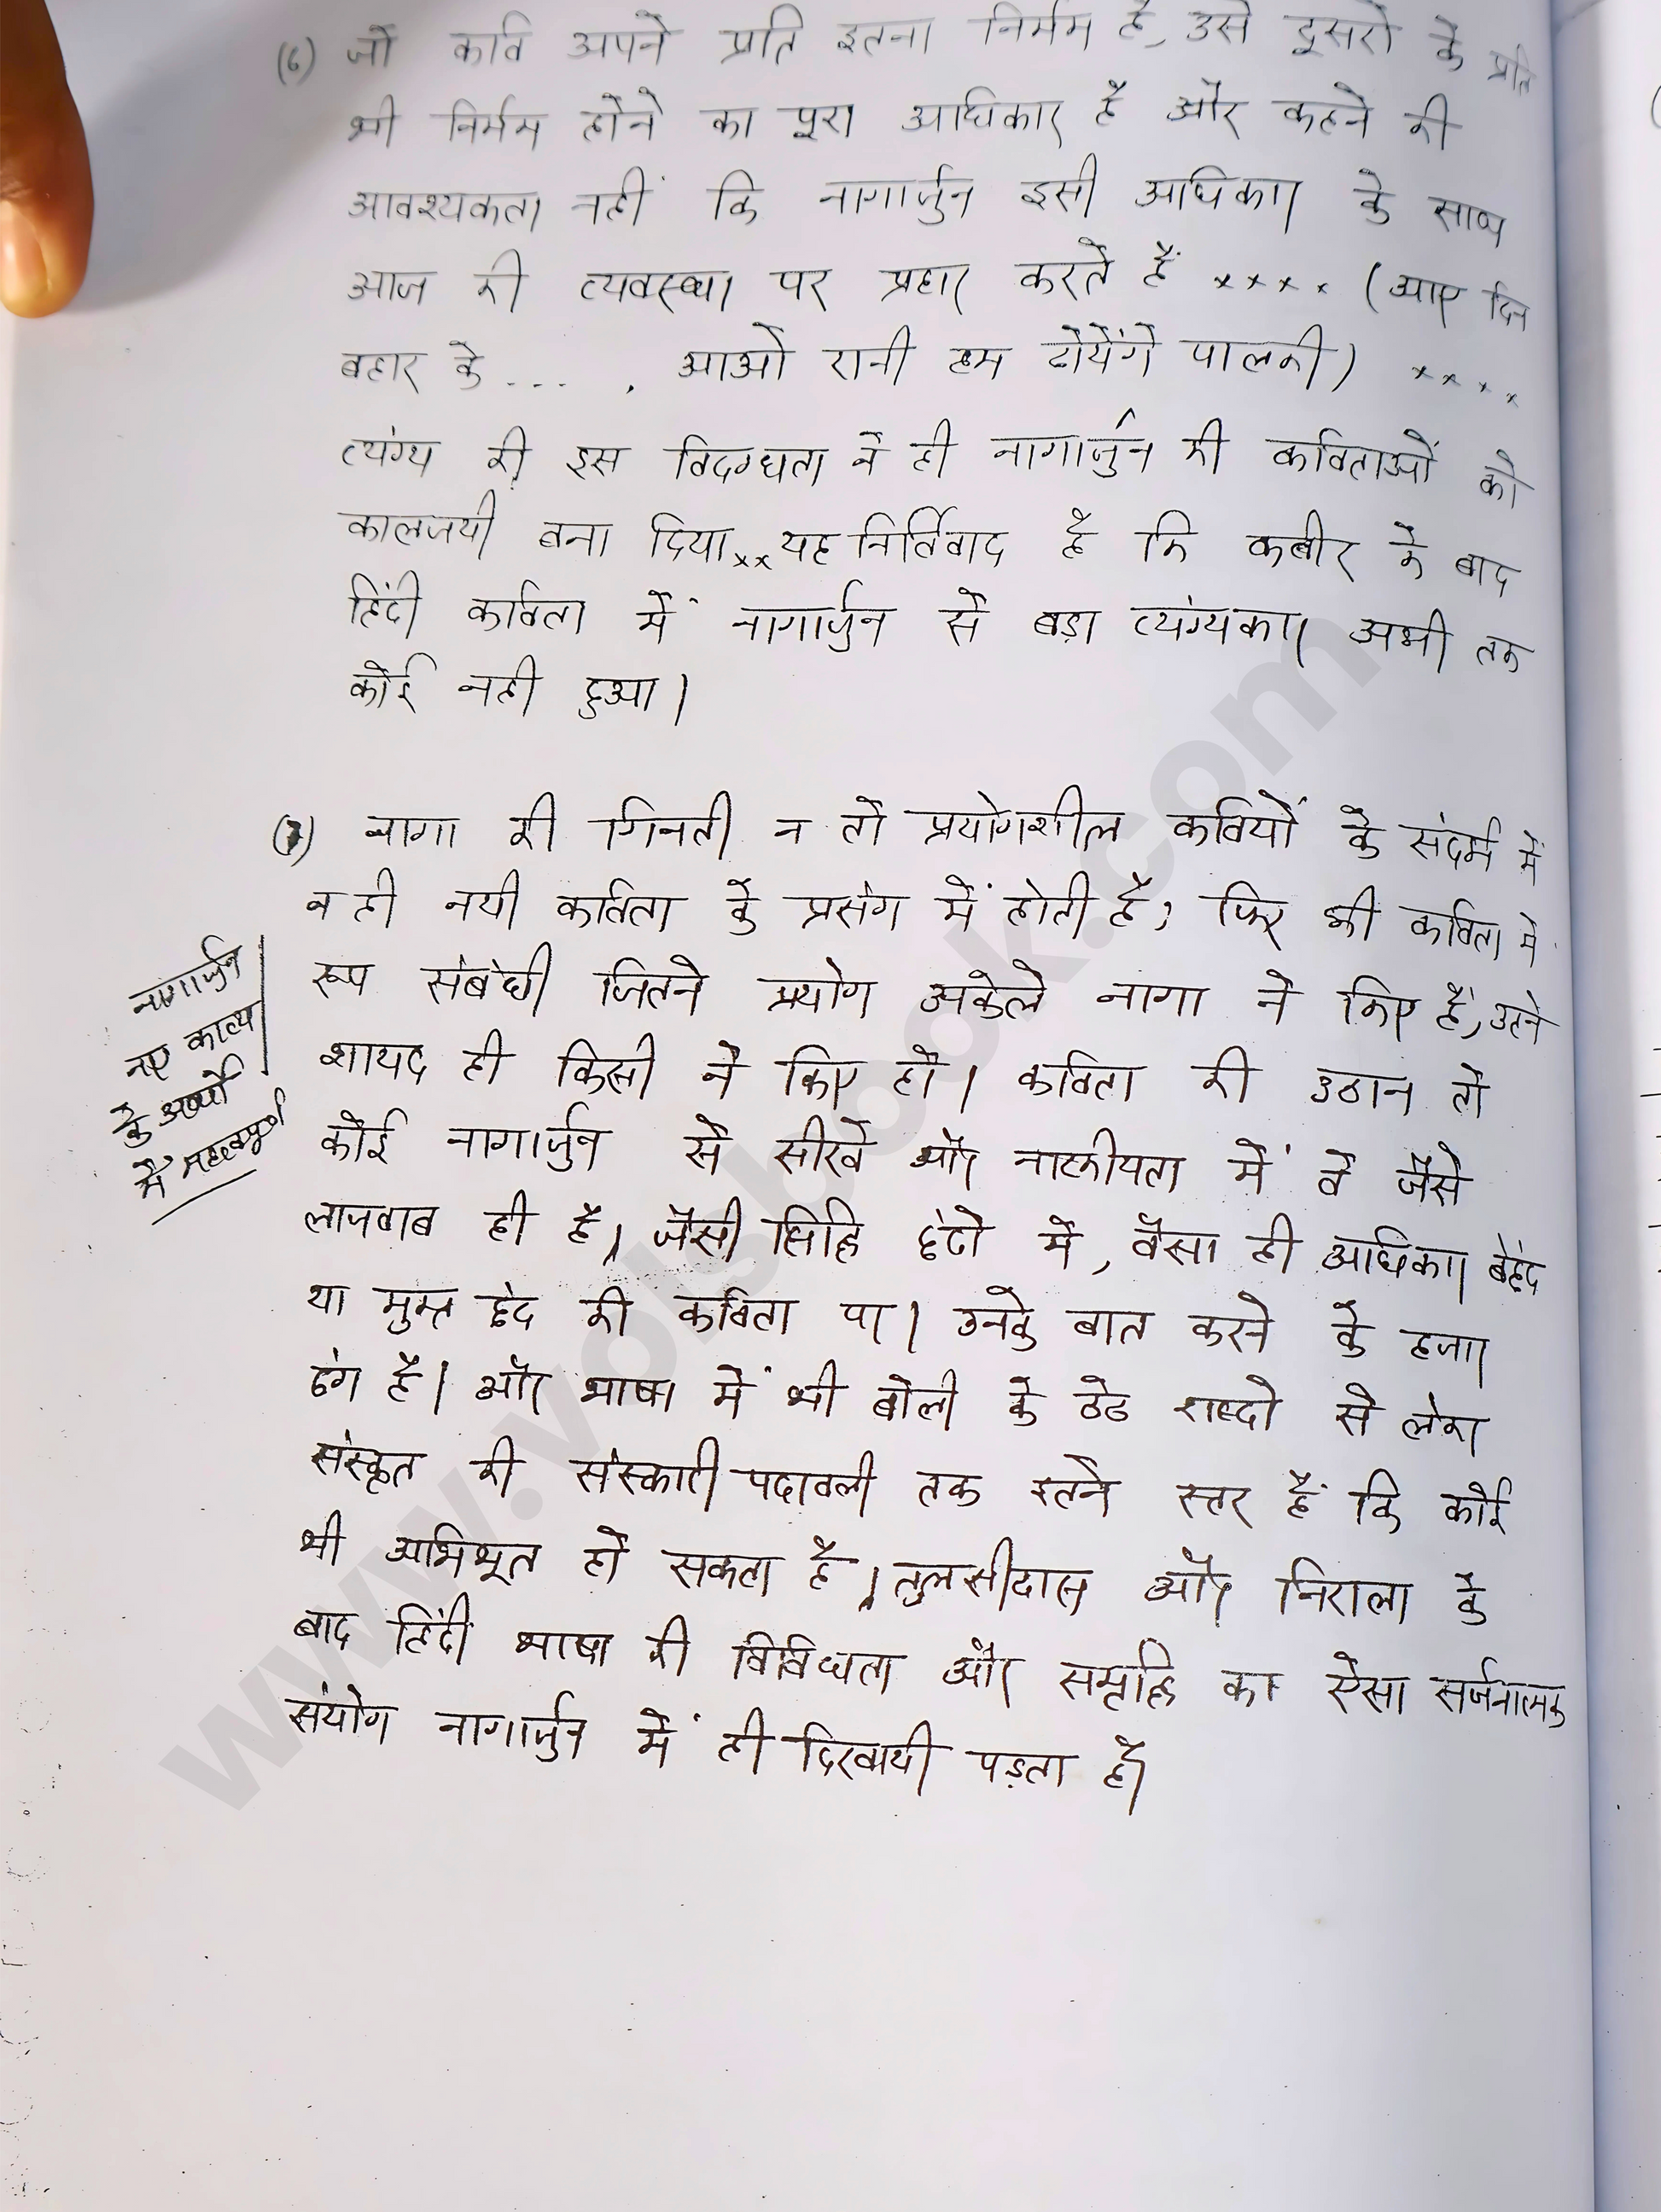 (6) जो कवि अपने प्रति इतना निर्मम है, उसे दूसरो के प्रति
भी निर्मम होने का पूरा अधिकार है और कहने की
आवश्यकता नहीं कि नागार्जुन इसी अधिकार के साथ
आज की व्यवस्था पर प्रहार करते हैं ×××× (आए दिन
बहार के ... , आओ रानी हम ढोयेंगे पालकी) ××××
व्यंग्य की इस विदग्धता ने ही नागार्जुन की कविताओं को
कालजयी बना दिया ×× यह निर्विवाद है कि कबीर के बाद
हिंदी कविता में नागार्जुन से बड़ा व्यंग्यकार अभी तक
कोई नही हुआ।
(7) नागा की गिनती न तो प्रयोगशील कवियों के संदर्भ में
न ही नयी कविता के प्रसंग में होती है, फिर भी कविता में
रूप संबंधी जितने प्रयोग अकेले नागा ने किए हैं, उतने
शायद ही किसी ने किए हो। कविता की उठान तो
कोई नागार्जुन से सीखे और नाटकीयता में वे जैसे
लाजवाब ही है। जैसी सिद्धि छंदो में, वैसा ही अधिकार बेछंद
या मुक्त छंद की कविता पर। उनके बात करने के हजार
ढंग है। और भाषा में भी बोली के ठेठ शब्दो से लेकर
संस्कृत की संस्कारी पदावली तक इतने स्तर हैं कि कोई
भी अभिभूत हो सकता है। तुलसीदास और निराला के
बाद हिंदी भाषा की विविधता और समृद्धि का ऐसा सर्जनात्मक
संयोग नागार्जुन में ही दिखायी पड़ता है।
नागार्जुन
नए काव्य
के अर्थों
में महत्वपूर्ण
www.volsbook.com